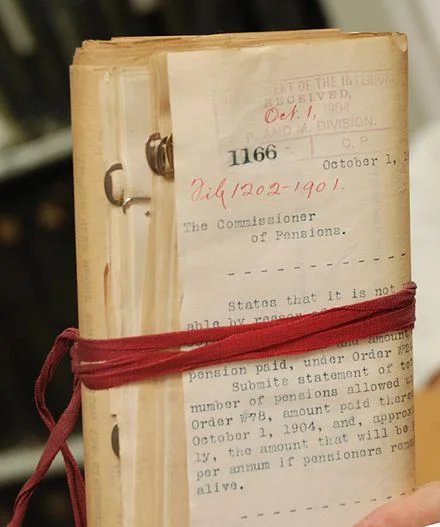 DEPARTMENT OF THE INTERIOR
RECEIVED,
Oct. 1, 1904
P. AND M. DIVISION.
1166
C. P.
October 1, 1
File 1202-1901.
The Commissioner
of Pensions.
States that it is not
able by reason of
and amount
pension paid, under Order #
Submits statement of to
number of pensions allowed u
Order #78, amount paid there
October 1, 1904, and, approx
ly, the amount that will be
per annum if pensioners rema
alive.